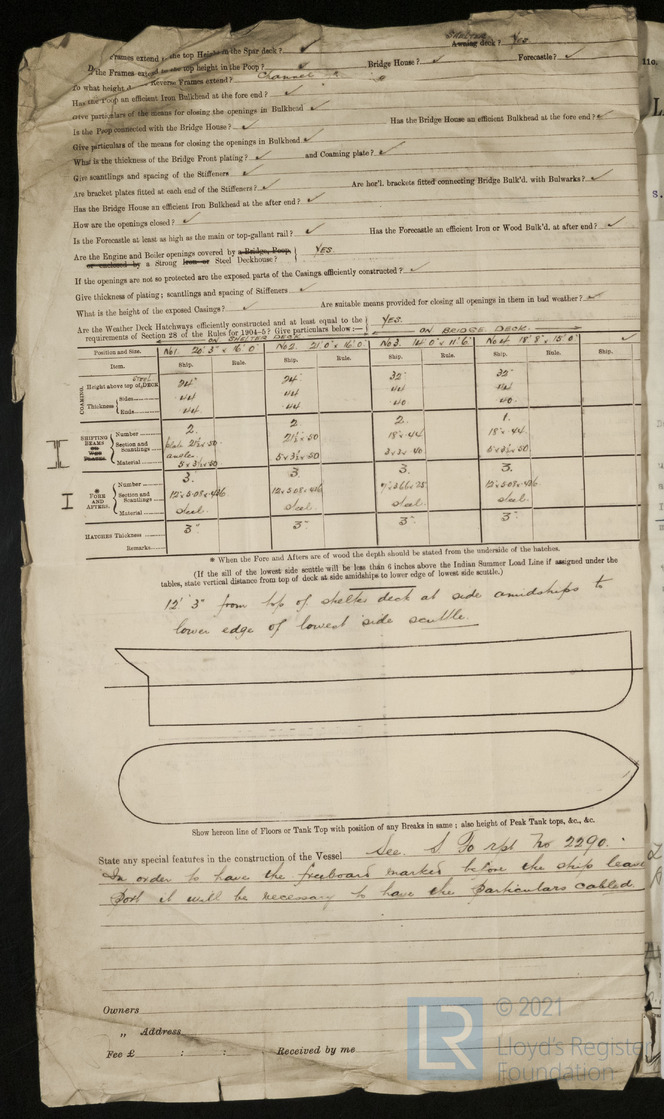 Frames extend to the top Height in the Spar deck? ✓ SHELTER Awning deck? Yes
Do the Frames extend to the top height in the Poop? ✓ Bridge House? ✓ Forecastle? ✓
To what height Reverse Frames extend? Channel
Has the Poop an efficient Iron Bulkhead at the fore end? ✓
Give particulars of the means for closing the openings in Bulkhead ✓
Is the Poop connected with the Bridge House? ✓ Has the Bridge House an efficient Bulkhead at the fore end? ✓
Give particulars of the means for closing the openings in Bulkhead ✓
What is the thickness of the Bridge Front plating? ✓ and Coaming plate? ✓
Give scantlings and spacing of the Stiffeners ✓
Are bracket plates fitted at each end of the Stiffeners? ✓ Are hor'l. brackets fitted connecting Bridge Bulk'd. with Bulwarks? ✓
Has the Bridge House an efficient Iron Bulkhead at the after end? ✓
How are the openings closed? ✓
Is the Forecastle at least as high as the main or top-gallant rail? ✓ Has the Forecastle an efficient Iron or Wood Bulk'd. at after end? ✓
Are the Engine and Boiler openings covered by a Bridge, Poop, YES
or enclosed by a Strong Iron or Steel Deckhouse?
If the openings are not so protected are the exposed parts of the Casings efficiently constructed? ✓
Give thickness of plating; scantlings and spacing of Stiffeners ✓
What is the height of the exposed Casings? ✓ Are suitable means provided for closing all openings in them in bad weather? ✓
Are the Weather Deck Hatchways efficiently constructed and at least equal to the YES.
requirements of Section 28 of the Rules for 1904-5? Give particulars below:—
ON SHELTER DECK ON BRIDGE DECK.
Position and Size. No1. 20' 3" x 16' 0" No2. 21' 0" x 16' 0" No 3. 14' 0" x 11' 6" No 4 18' 8" x 15' 0" ✓
Item. Ship. Rule. Ship. Rule. Ship. Rule. Ship. Rule. Ship.
COAMING Height above top of DECK 24" 24" 32" 32"
Thickness Sides .44 .44 .44 .44
Ends .44 .44 .40 .40
SHIFTING BEAMS OR WEB PLATES Number 2. 2. 2. 1.
Section and Scantlings Plate 21½ x .50 21½ x .50 18" x .44 18" x .44
angles 5 x 3½ x .50 5 x 3½ x .50 3 x 3 x .40 5 x 3½ x .50
Material
* FORE AND AFTERS. Number 3. 3. 3. 3.
Section and Scantlings
Material steel. steel. steel. steel.
HATCHES Thickness 3" 3" 3" 3"
Remarks
* When the Fore and Afters are of wood the depth should be stated from the underside of the hatches.
(If the sill of the lowest side scuttle will be less than 6 inches above the Indian Summer Load Line if assigned under the
tables, state vertical distance from top of deck at side amidships to lower edge of lowest side scuttle.)
12' 3" from top of shelter deck at side amidships to
lower edge of lowest side scuttle.
Show hereon line of Floors or Tank Top with position of any Breaks in same; also height of Peak Tank tops, &c., &c.
State any special features in the construction of the Vessel See rpt No 2290.
In order to have the freeboard marked before the ship leaves
Port it will be necessary to have the particulars cabled.
Owners
„ Address
Fee £ : : Received by me
LR
© 2021
Lloyd's Register
Foundation